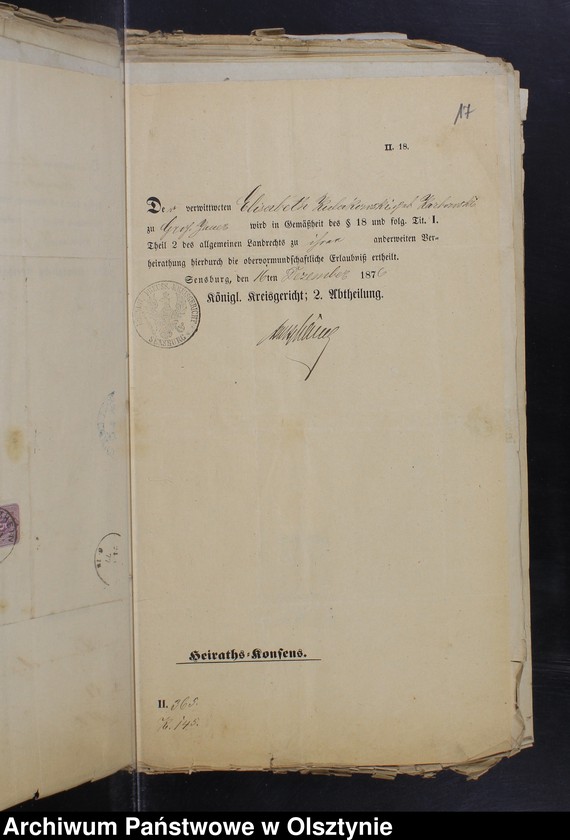 17
II. 18.
Der verwittweten Elisabeth geb.
zu Groß wird in Gemäßheit des § 18 und folg. Tit. I.
Theil 2 des allgemeinen Landrechts zu ihrer anderweiten Ver-
heirathung hierdurch die obervormundschaftliche Erlaubniß ertheilt.
Sensburg, den 16ten Dezember 1876
Königl. Kreisgericht; 2. Abtheilung.
SENSBURG
Heiraths-Konsens.
II. 365.
K. 145.
Archiwum Państwowe w Olsztynie